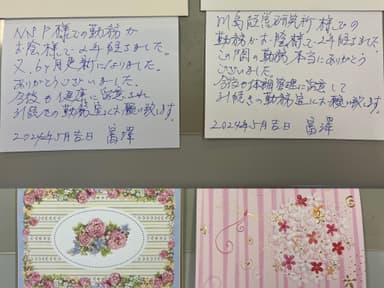 NSP様での勤務が
お陰様で2年経ちました。
又、6ヶ月更新になりました。
ありがとうございました。
今後の健康に留意され
引続きの勤務宜しくお願い致します。
2024年5月吉日
様での
勤務がお陰様で2年経ちました。
この間の勤務、本当にありがとう
ございました。
今後の体調管理に留意して
引続きの勤務宜しくお願い致します。
2024年5月吉日